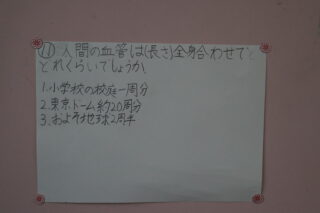 ⑪ 人間の血管は(長さ)全身合わせて
どれくらいでしょうか、
1.小学校の校庭一周分
2.東京ドーム約20周分
3.およそ地球2周半